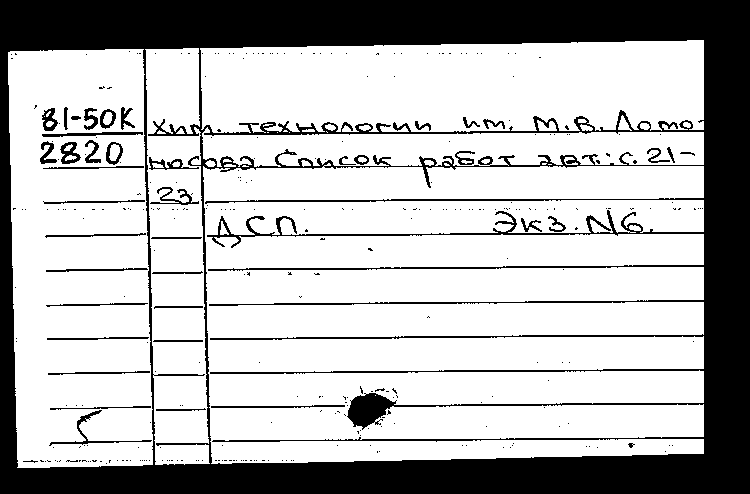 81-50К хим. технологии им. М.В. Ломо-
2820 носова. Список работ авт.: с. 21-
23
ДСП. Экз. N6.